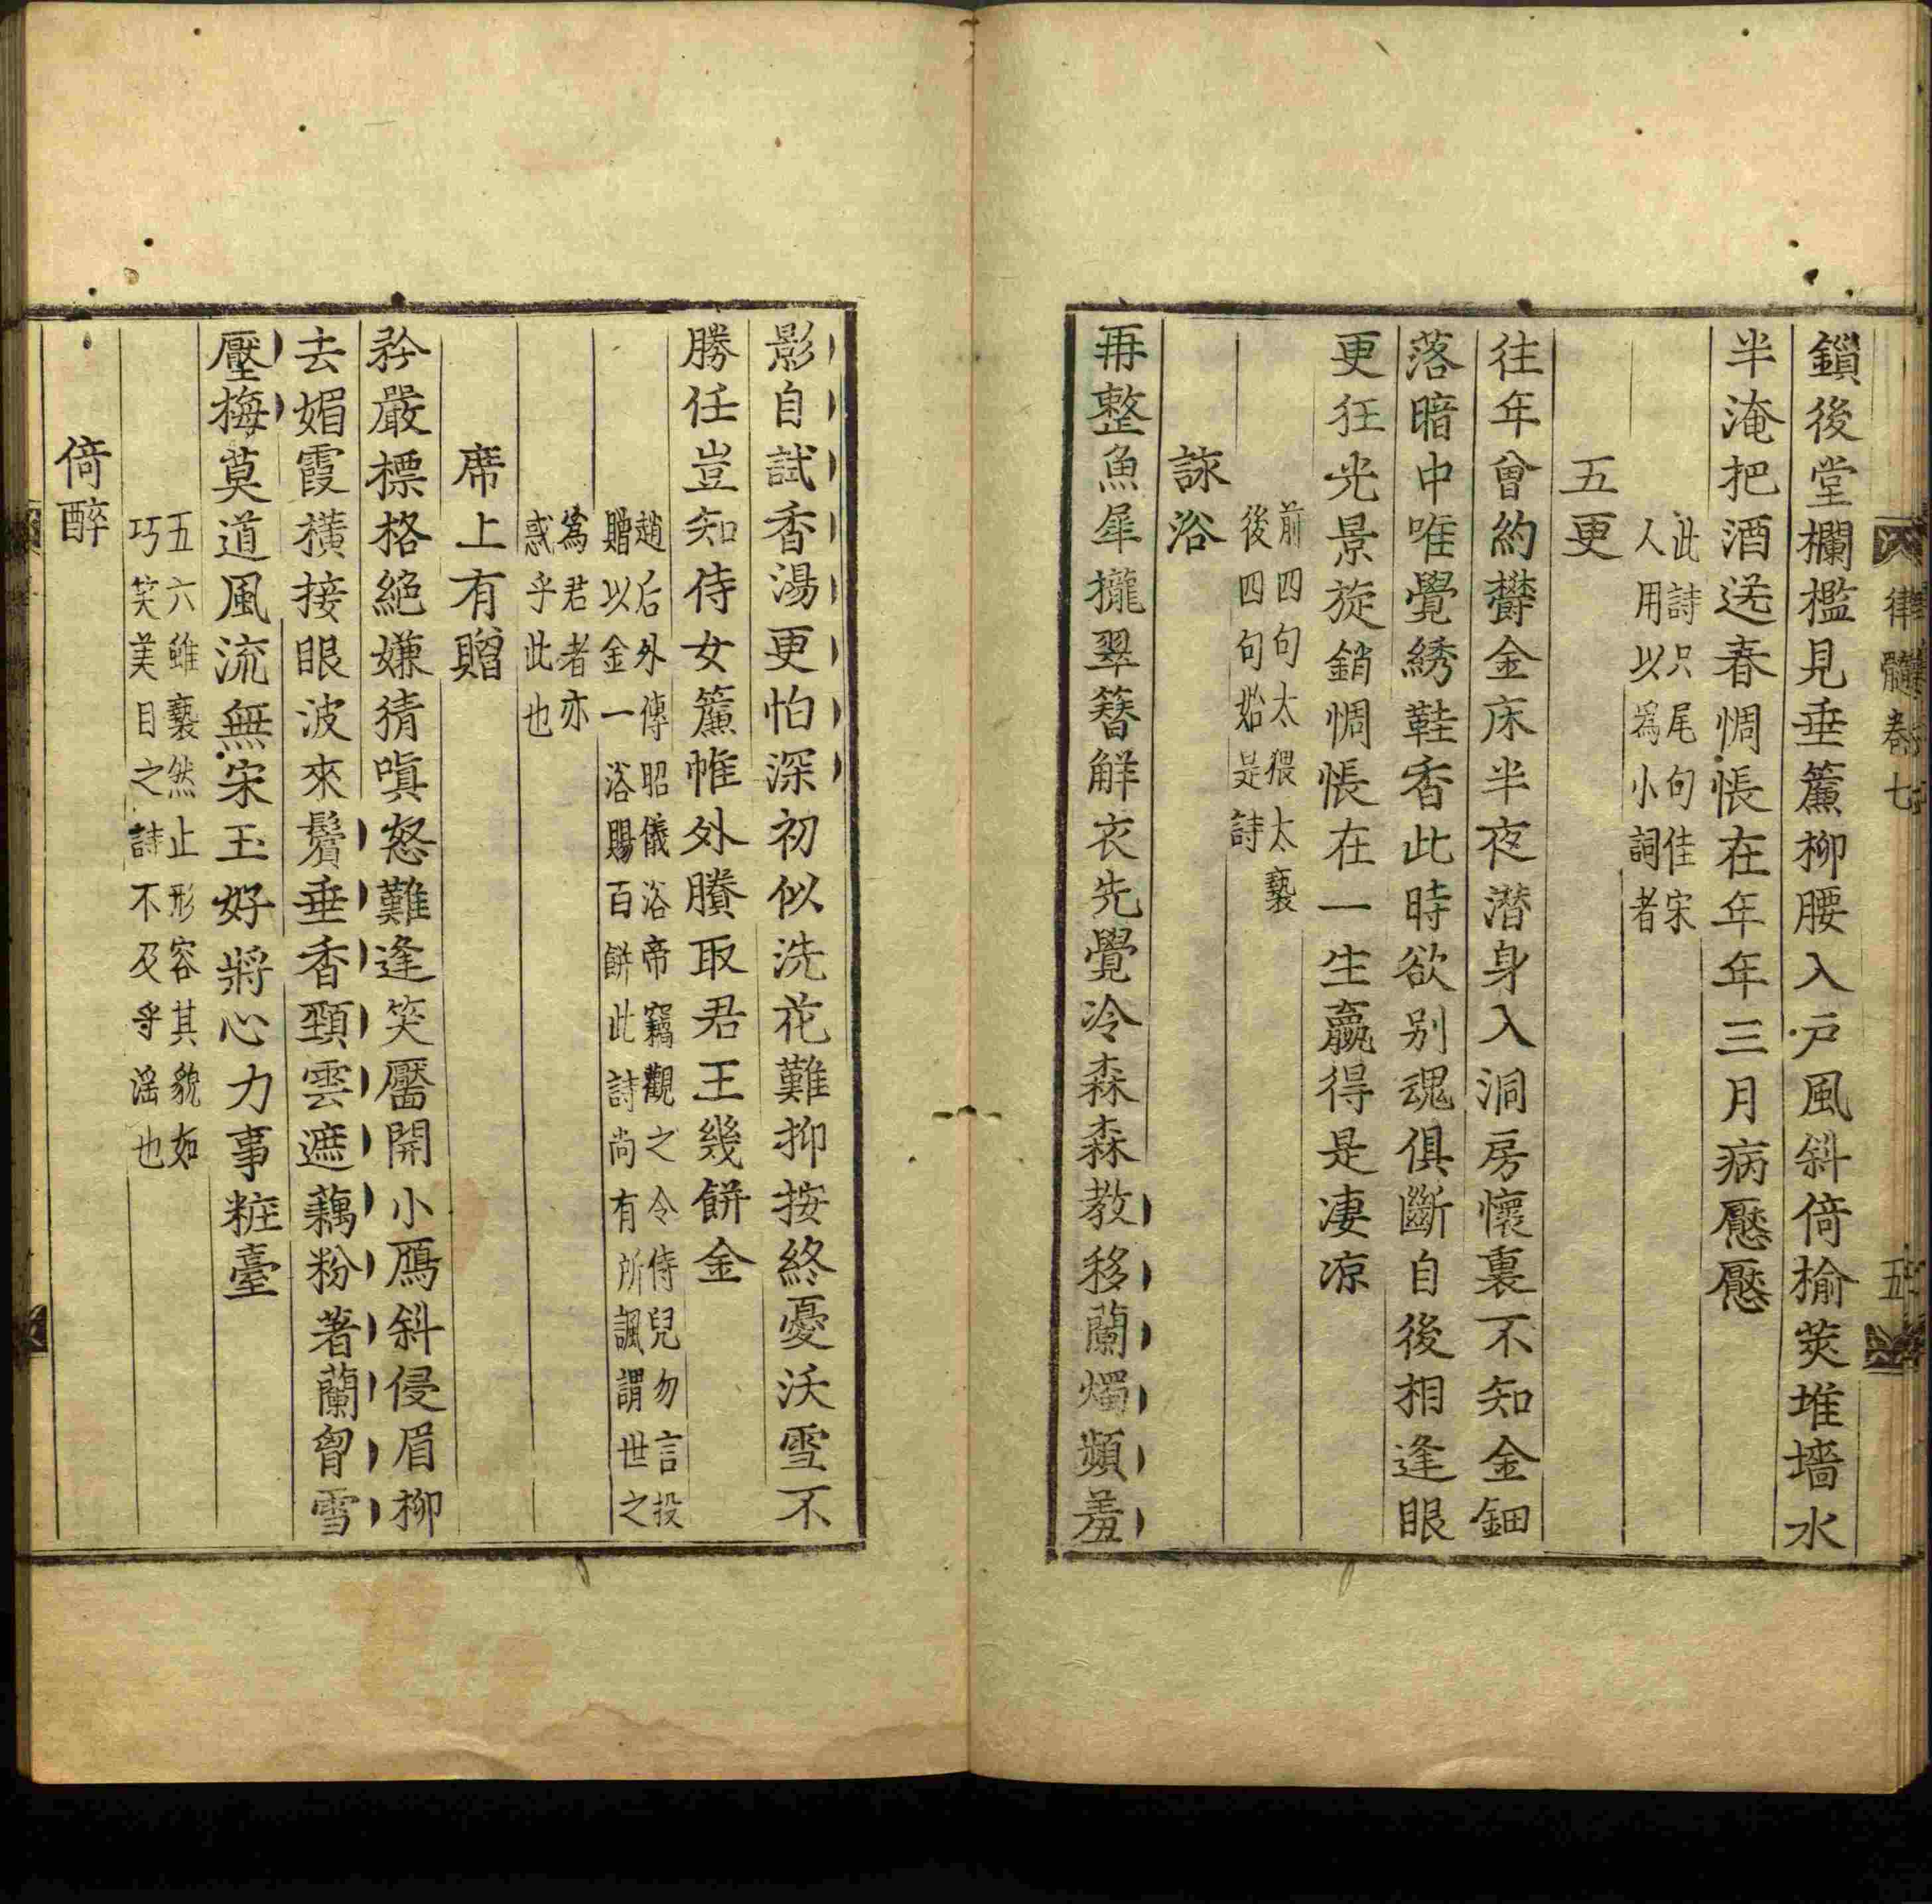 律髓卷七
五
鎖後堂欄檻見垂簾柳腰入戶風斜倚榆莢堆墻水
半淹把酒送春惆悵在年年三月病懕懕
此詩只尾句佳宋
人用以為小詞者
五更
往年曾約欝金床半夜潛身入洞房懷裏不知金鈿
落暗中唯覺綉鞋香此時欲別魂俱斷自後相逢眼
更狂光景旋銷惆悵在一生贏得是凄凉
前四句太猥太褻
後四句始是詩
詠浴
再整魚犀攏翠簪解衣先覺冷森森教移蘭燭頻羞
影自試香湯更怕深初似洗花難抑按終憂沃雪不
勝任豈知侍女簾帷外賸取君王幾餅金
趙后外傳昭儀浴帝竊觀之令侍兒勿言投
贈以金一浴賜百餅此詩尚有所諷謂世之
為君者亦
惑乎此也
席上有贈
矜嚴標格絕嫌猜嗔怒難逢笑靨開小鴈斜侵眉柳
去媚霞橫接眼波來鬢垂香頸雲遮藕粉著蘭胷雪
壓梅莫道風流無宋玉好將心力事粧臺
五六雖褻然止形容其貌如
巧笑美目之詩不及乎滛也
倚醉